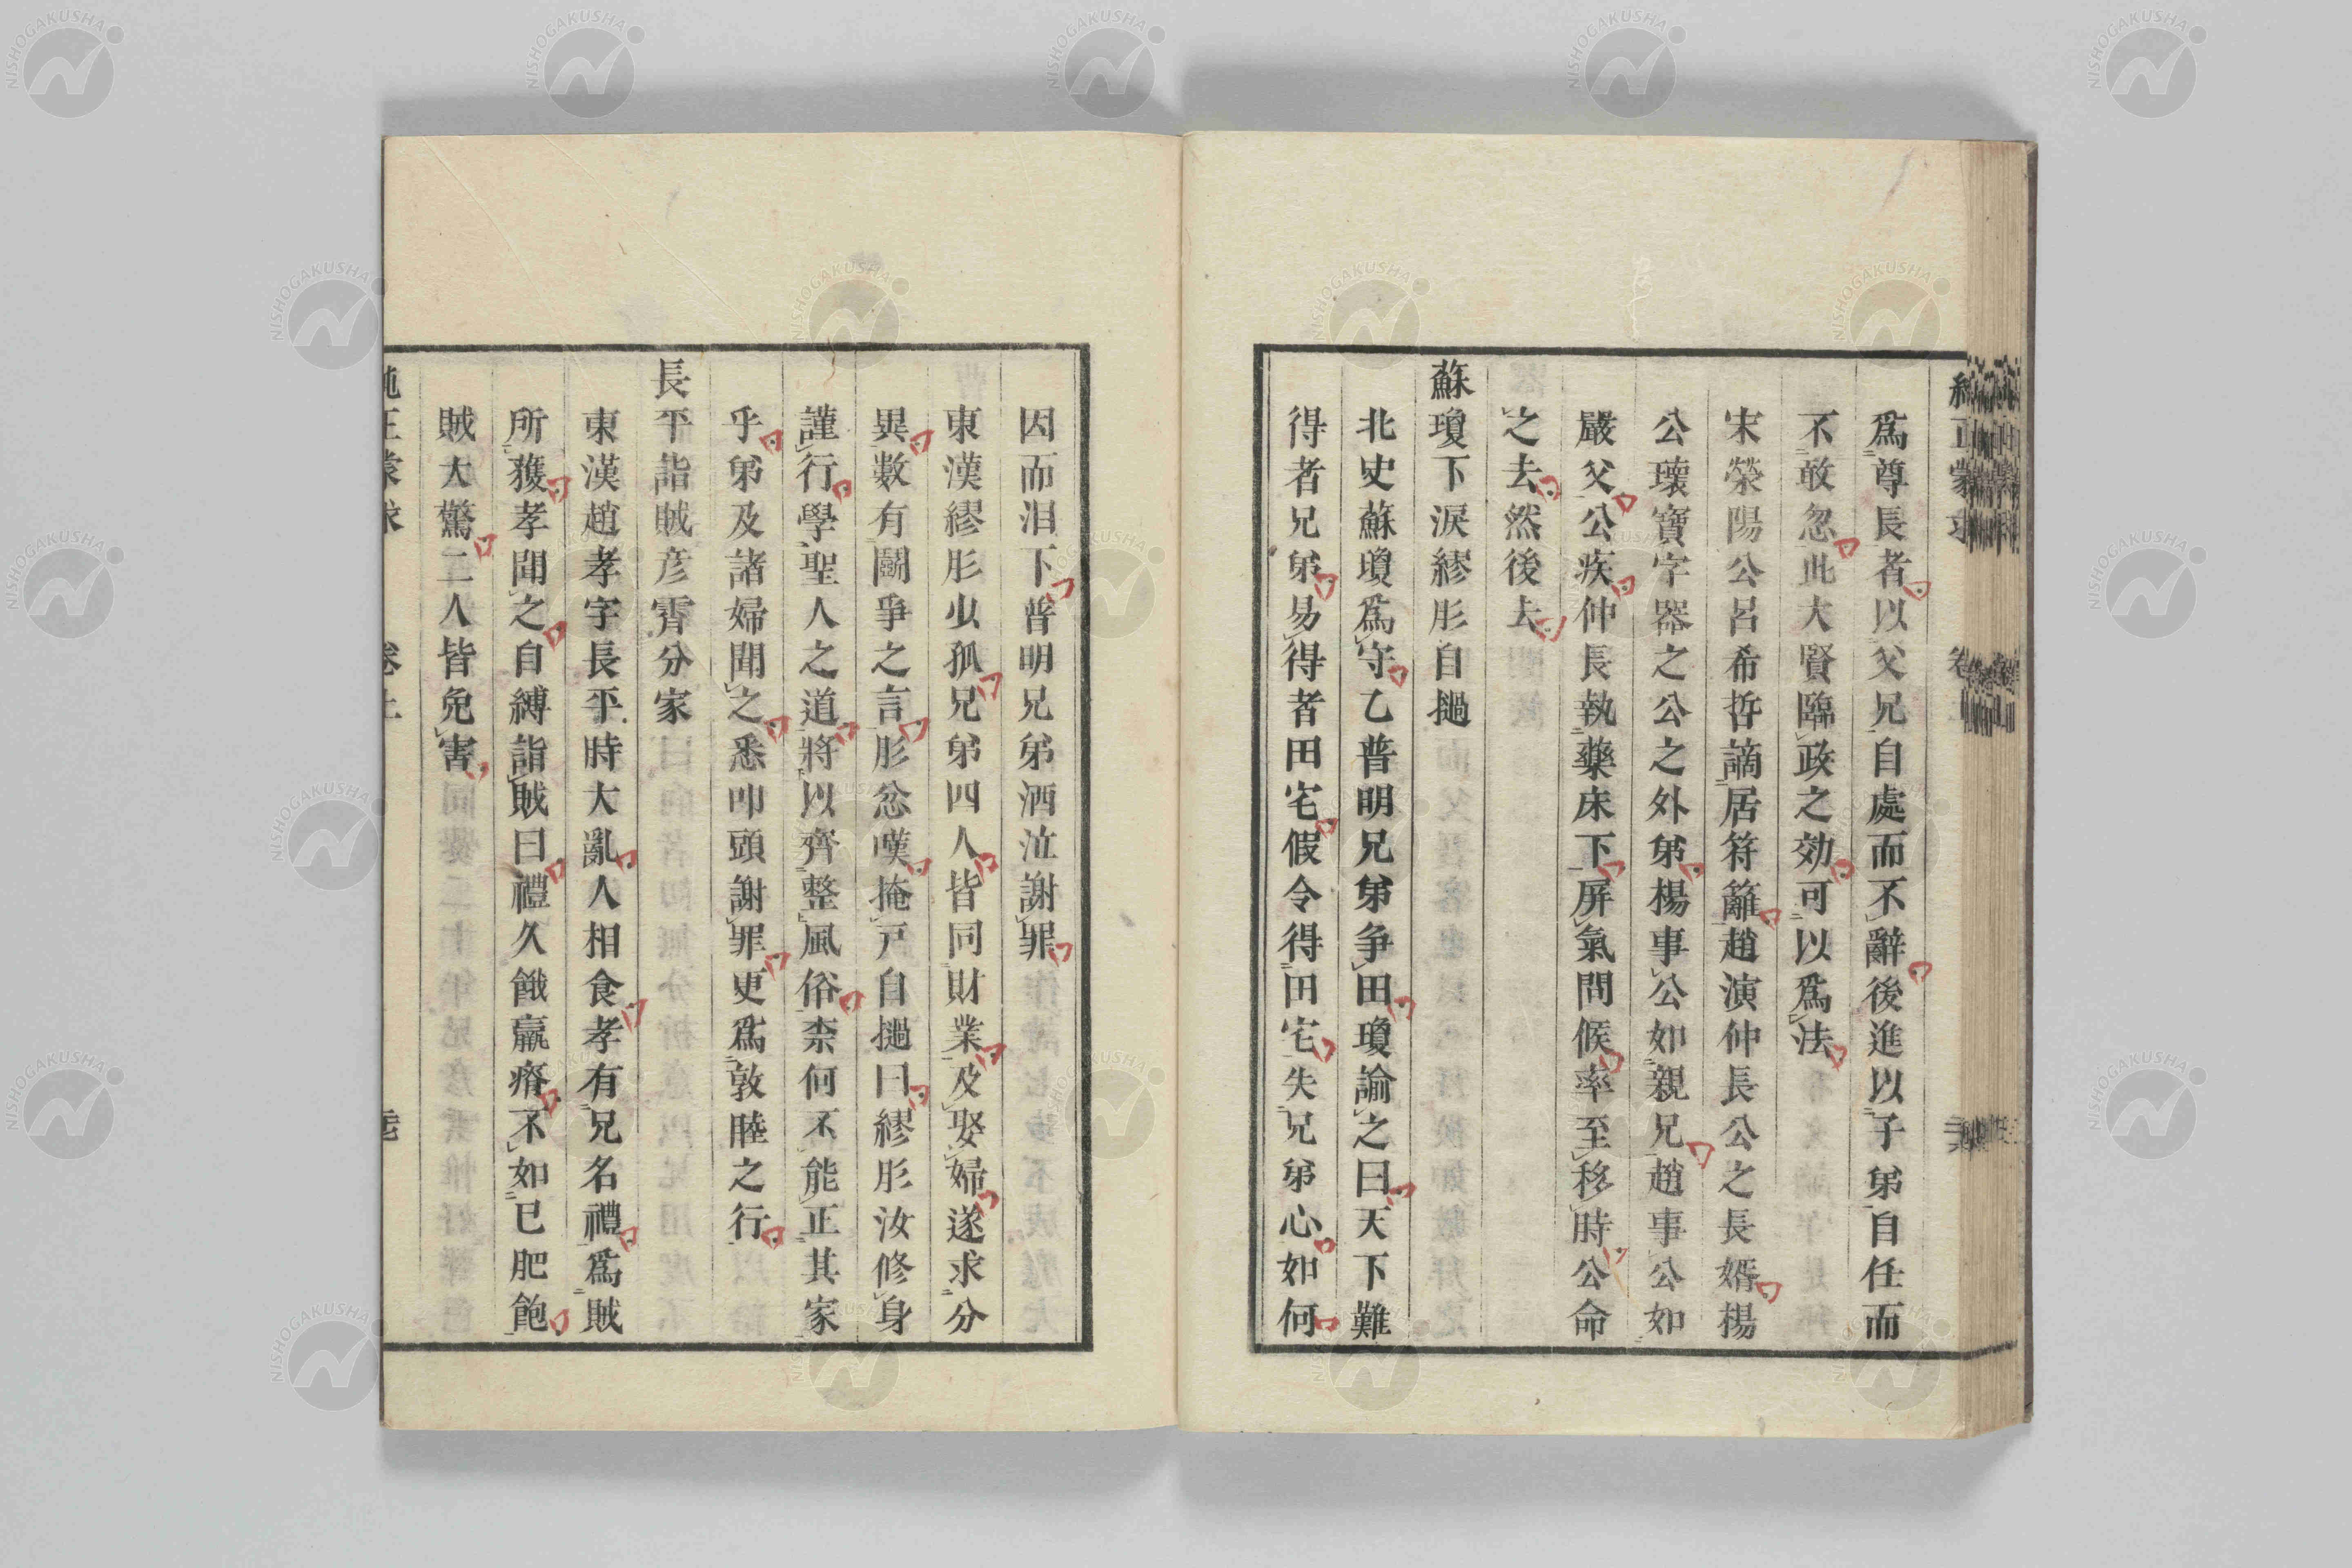 爲尊長者以父兄自處而不辭後進以子弟自任而
不敢忽此大賢臨政之効可以爲法
宋滎陽公呂希哲謫居符籬趙演仲長公之長婿楊
公瓌寶字器之公之外弟楊事公如親兄趙事公如
嚴父公疾仲長執藥床下屏氣問候率至移時公命
之去然後去
蘇瓊下淚繆肜自撾
北史蘇瓊爲守乙普明兄弟争田瓊諭之曰天下難
得者兄弟易得者田宅假令得田宅失兄弟心如何
因而泪下普明兄弟洒泣謝罪
東漢繆肜少孤兄弟四人皆同財業及娶婦遂求分
異數有鬭爭之言肜忿嘆掩戸自撾曰繆肜汝修身
謹行學聖人之道將以齊整風俗柰何不能正其家
乎弟及諸婦聞之悉叩頭謝罪更爲敦睦之行
長平詣賊彦霄分家
東漢趙孝字長平時大亂人相食孝有兄名禮爲賊
所獲孝聞之自縛詣賊曰禮久餓羸瘠不如已肥飽
賊大驚二人皆免害
純正蒙求 卷上
NISHOGAKUSHA